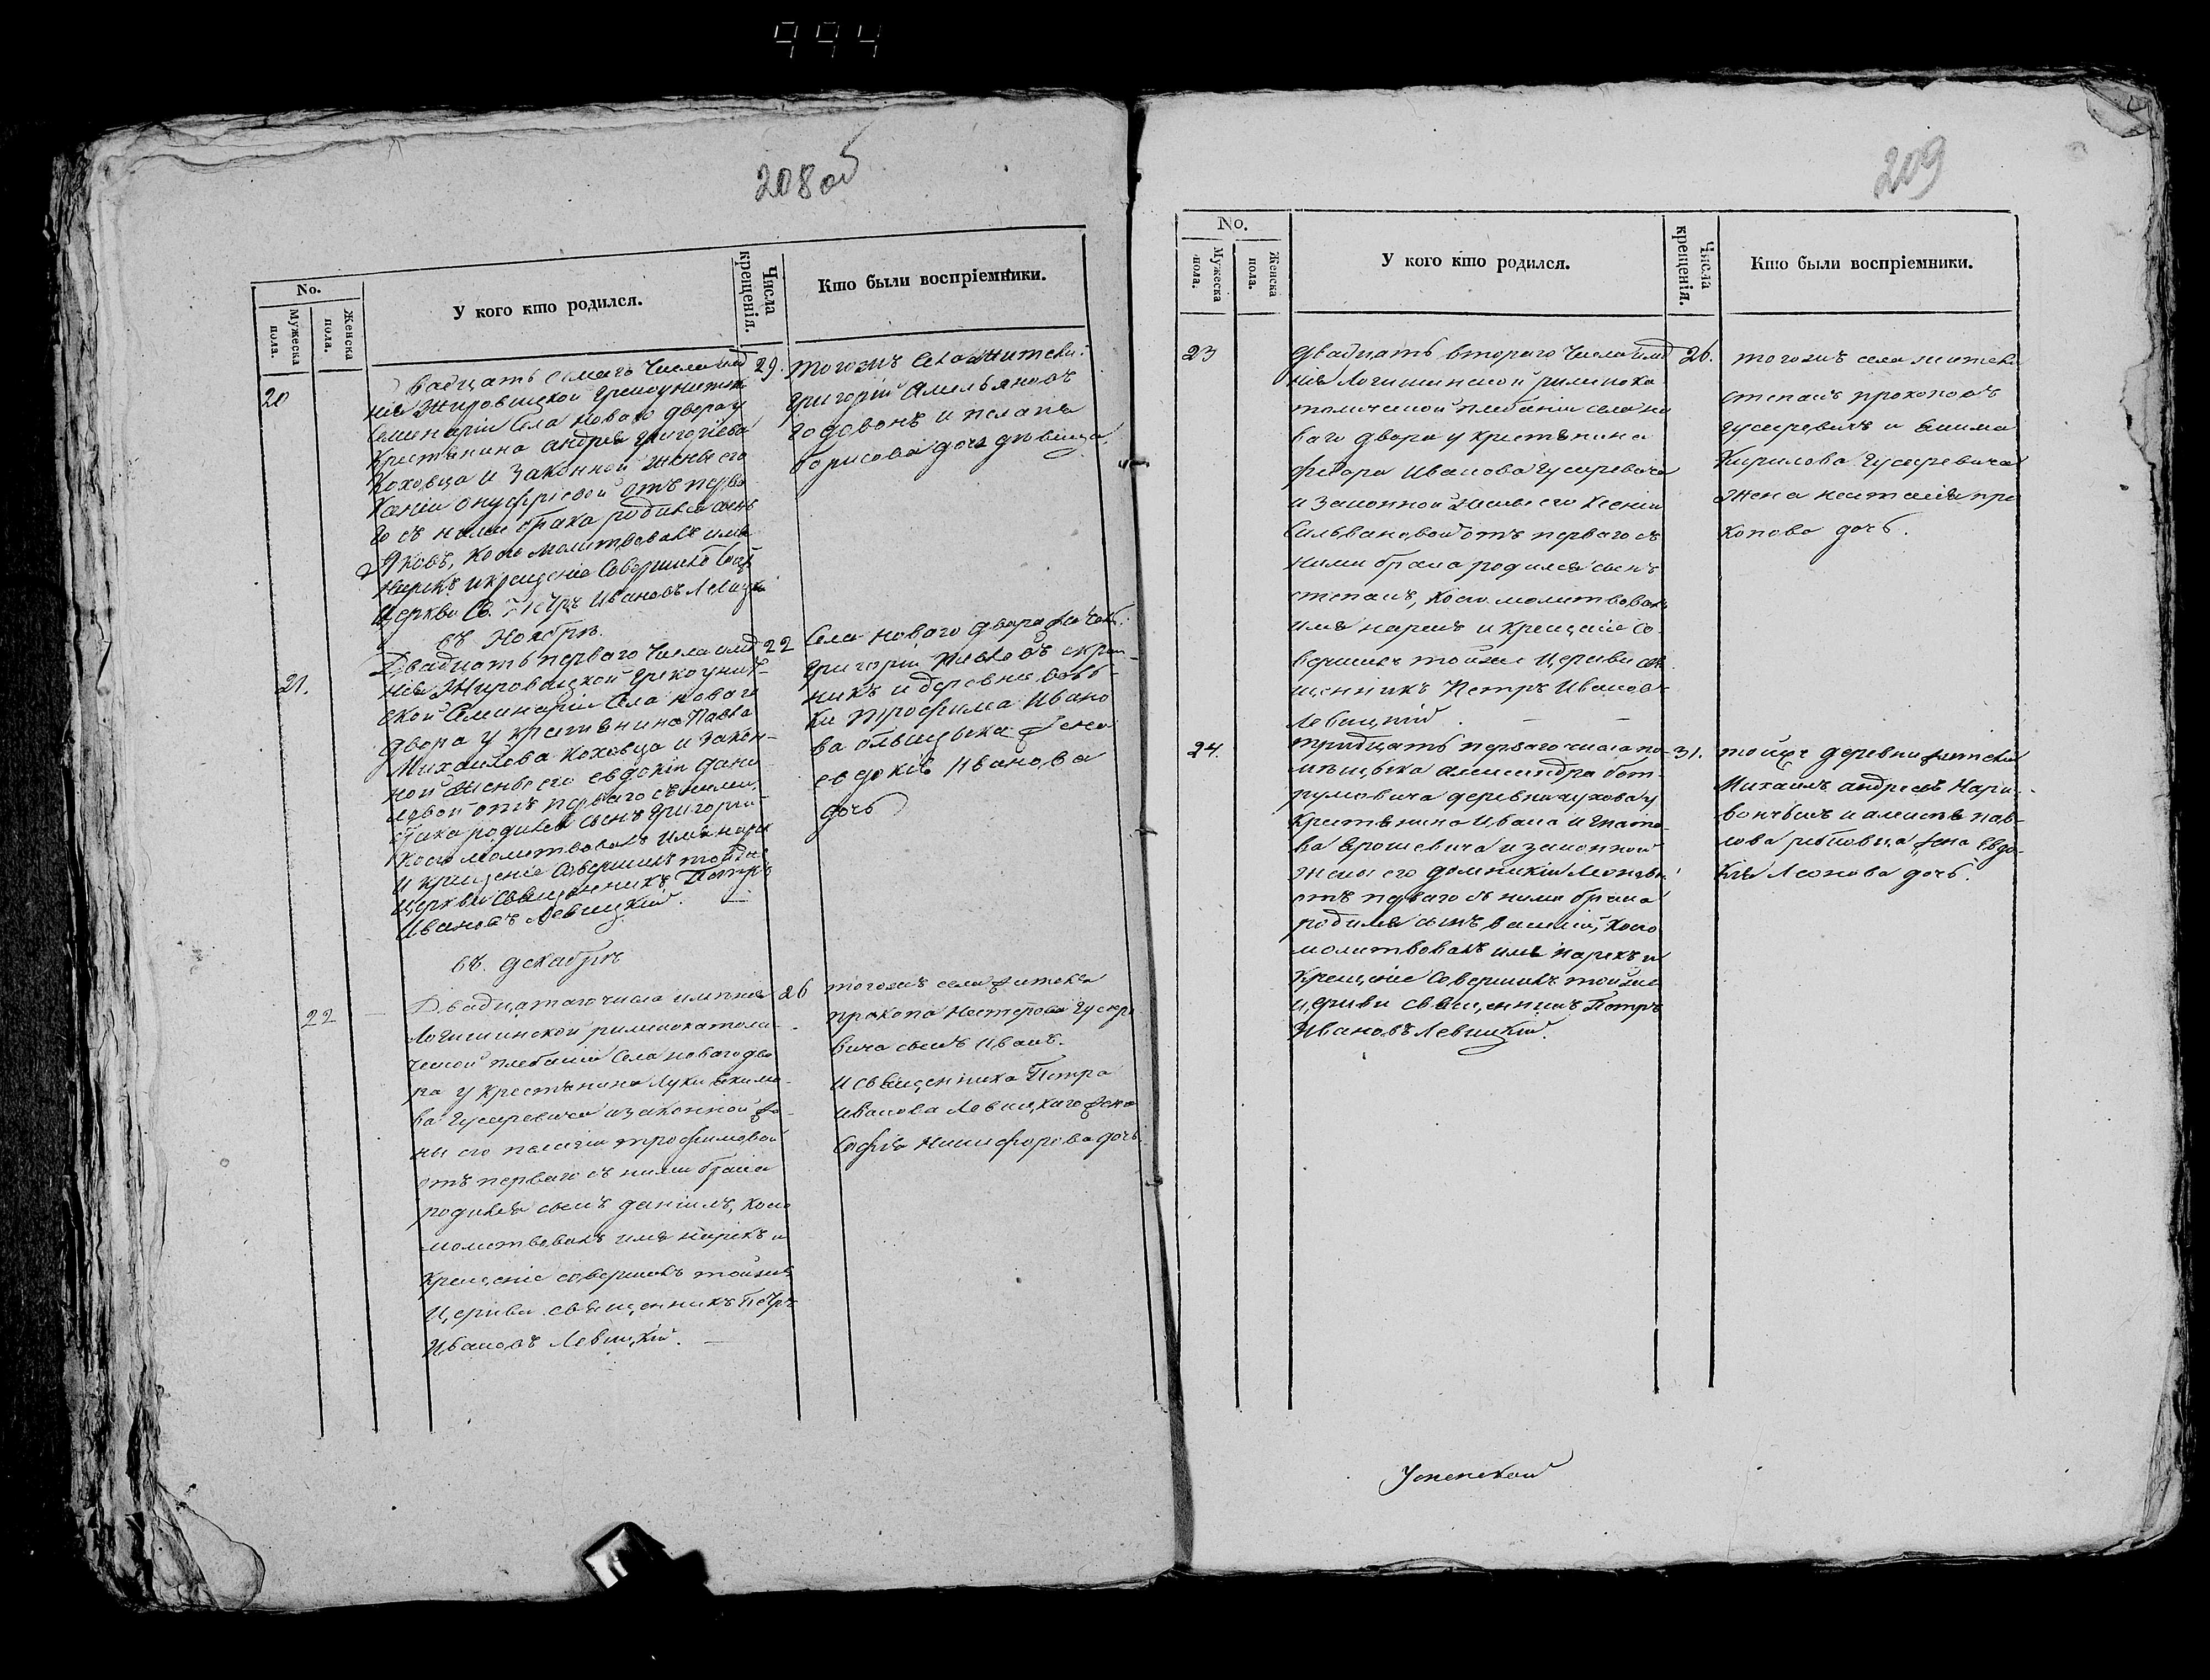 994
208 об
No.
Мужеска пола.
Женска пола.
У кого кто родился.
Числа крещенія.
Кто были воспріемники.
20
Двадцать семаго числа имѣ
нія Жировицкой Грекоунитск
Семинаріи Села Новаго двора у
Крестянина андрея Григоріева
Коховца и Законной жены его
Ксеніи онуфріевой отъ перва
го съ ними брака родился сынъ
Яковъ, коего молитвовалъ имя
нарекъ и крещеніе Совершилъ
Церкви Св. Петръ Ивановъ Левицк
29.
тогожъ Села жители:
Григорій Амельяновъ
и
борисова дочь дѣвица.
въ Ноябрѣ.
21.
Двадцать перваго числа имѣ
нія Жировицкой Грекоунит-
ской Семинаріи Села Новаго
двора у крестянина Павла
Михаилова Коховца и закон-
ной жены его евдокіи дани
ловой отъ перваго съ ними
брака родился сынъ Григорій
коего молитвовалъ имя нарек
и крещеніе Совершилъ тойже
церкви Священникъ Петръ
Ивановъ Левицкій.
22
Села Новаго двора
Григорій
никъ и деревни
ки трофима Ивано
ва жена
евдокія Иванова
дочь
въ декабрѣ
22
Двадцатаго числа имѣнія
Логишинской римскокатоли-
ческой плебаніи Села новаго дво
ра у крестянина Луки Екимо-
ва Гусаревича и законной же-
ны его пелагіи трофимовой
отъ перваго съ ними брака
родился сынъ даніилъ, коего
молитвовалъ имя нарекъ и
крещеніе совершилъ тойже
Церкви священникъ Петръ
Ивановъ Левицкій.
26
тогожъ села жители
прокопа Нестерова Гусаре
вича сынъ Иванъ.
и священника Петра
Иванова Левицкаго жена
Софія Никифорова дочь.
209
No.
Мужеска пола.
Женска пола.
У кого кто родился.
Числа крещенія.
Кто были воспріемники.
23
двадцать втораго числа имѣ
нія Логишинской римскока
толической плебаніи села но
ваго двора у крестянина
федора Иванова Гусаревича
и законной жены его Ксеніи
Сильвановой отъ перваго съ
ними брака родился сынъ
степанъ, коего молитвовалъ
имя нарекъ и крещеніе со
вершилъ тойже Церкви свя
щенникъ Петръ Ивановъ
Левицкій.
26.
тогожъ села жители
степанъ прокоповъ
гусаревичъ и Екима
Кирилова Гусаревича
жена настасія про
копова дочь.
24.
тридцать перваго числа по-
мѣщика александра
деревни у
крестянина Ивана Игнато-
ва Ярошевича и законной
жены его домникіи
отъ перваго съ ними брака
родился сынъ василій, коего
молитвовалъ имя нарекъ и
крещеніе Совершилъ тойже
церкви священникъ Петръ
Ивановъ Левицкій.
31.
тойже деревни жители
Михаилъ андреевъ
и пав-
лова жена Евдо-
кія Леонова дочь.
Успенской